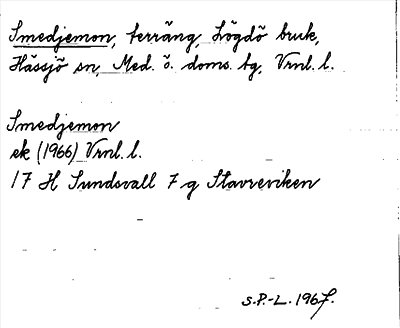 Smedjemon, terräng, Lögdö bruk,
Hässjö sn, Med. ö. doms. tg, Vrnl. l.
Smedjemon
ek (1966) Vrnl. l.
17 H Sundsvall 7 g Stavreviken
S.P.-L. 1967.